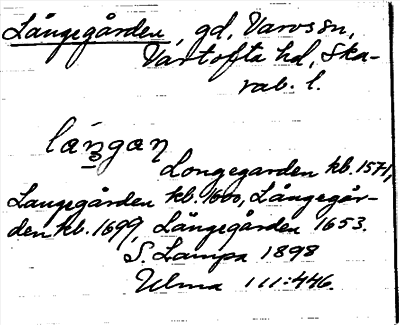 Långegården, gd, Varvs sn,
Vartofta hd, Ska-
rab. l.
Longegarden kb. 1571,
Langegården kb. 1600, Långegår-
den kb. 1699, Långegården 1653.
S. Lampa 1898
Ulma 111:446.